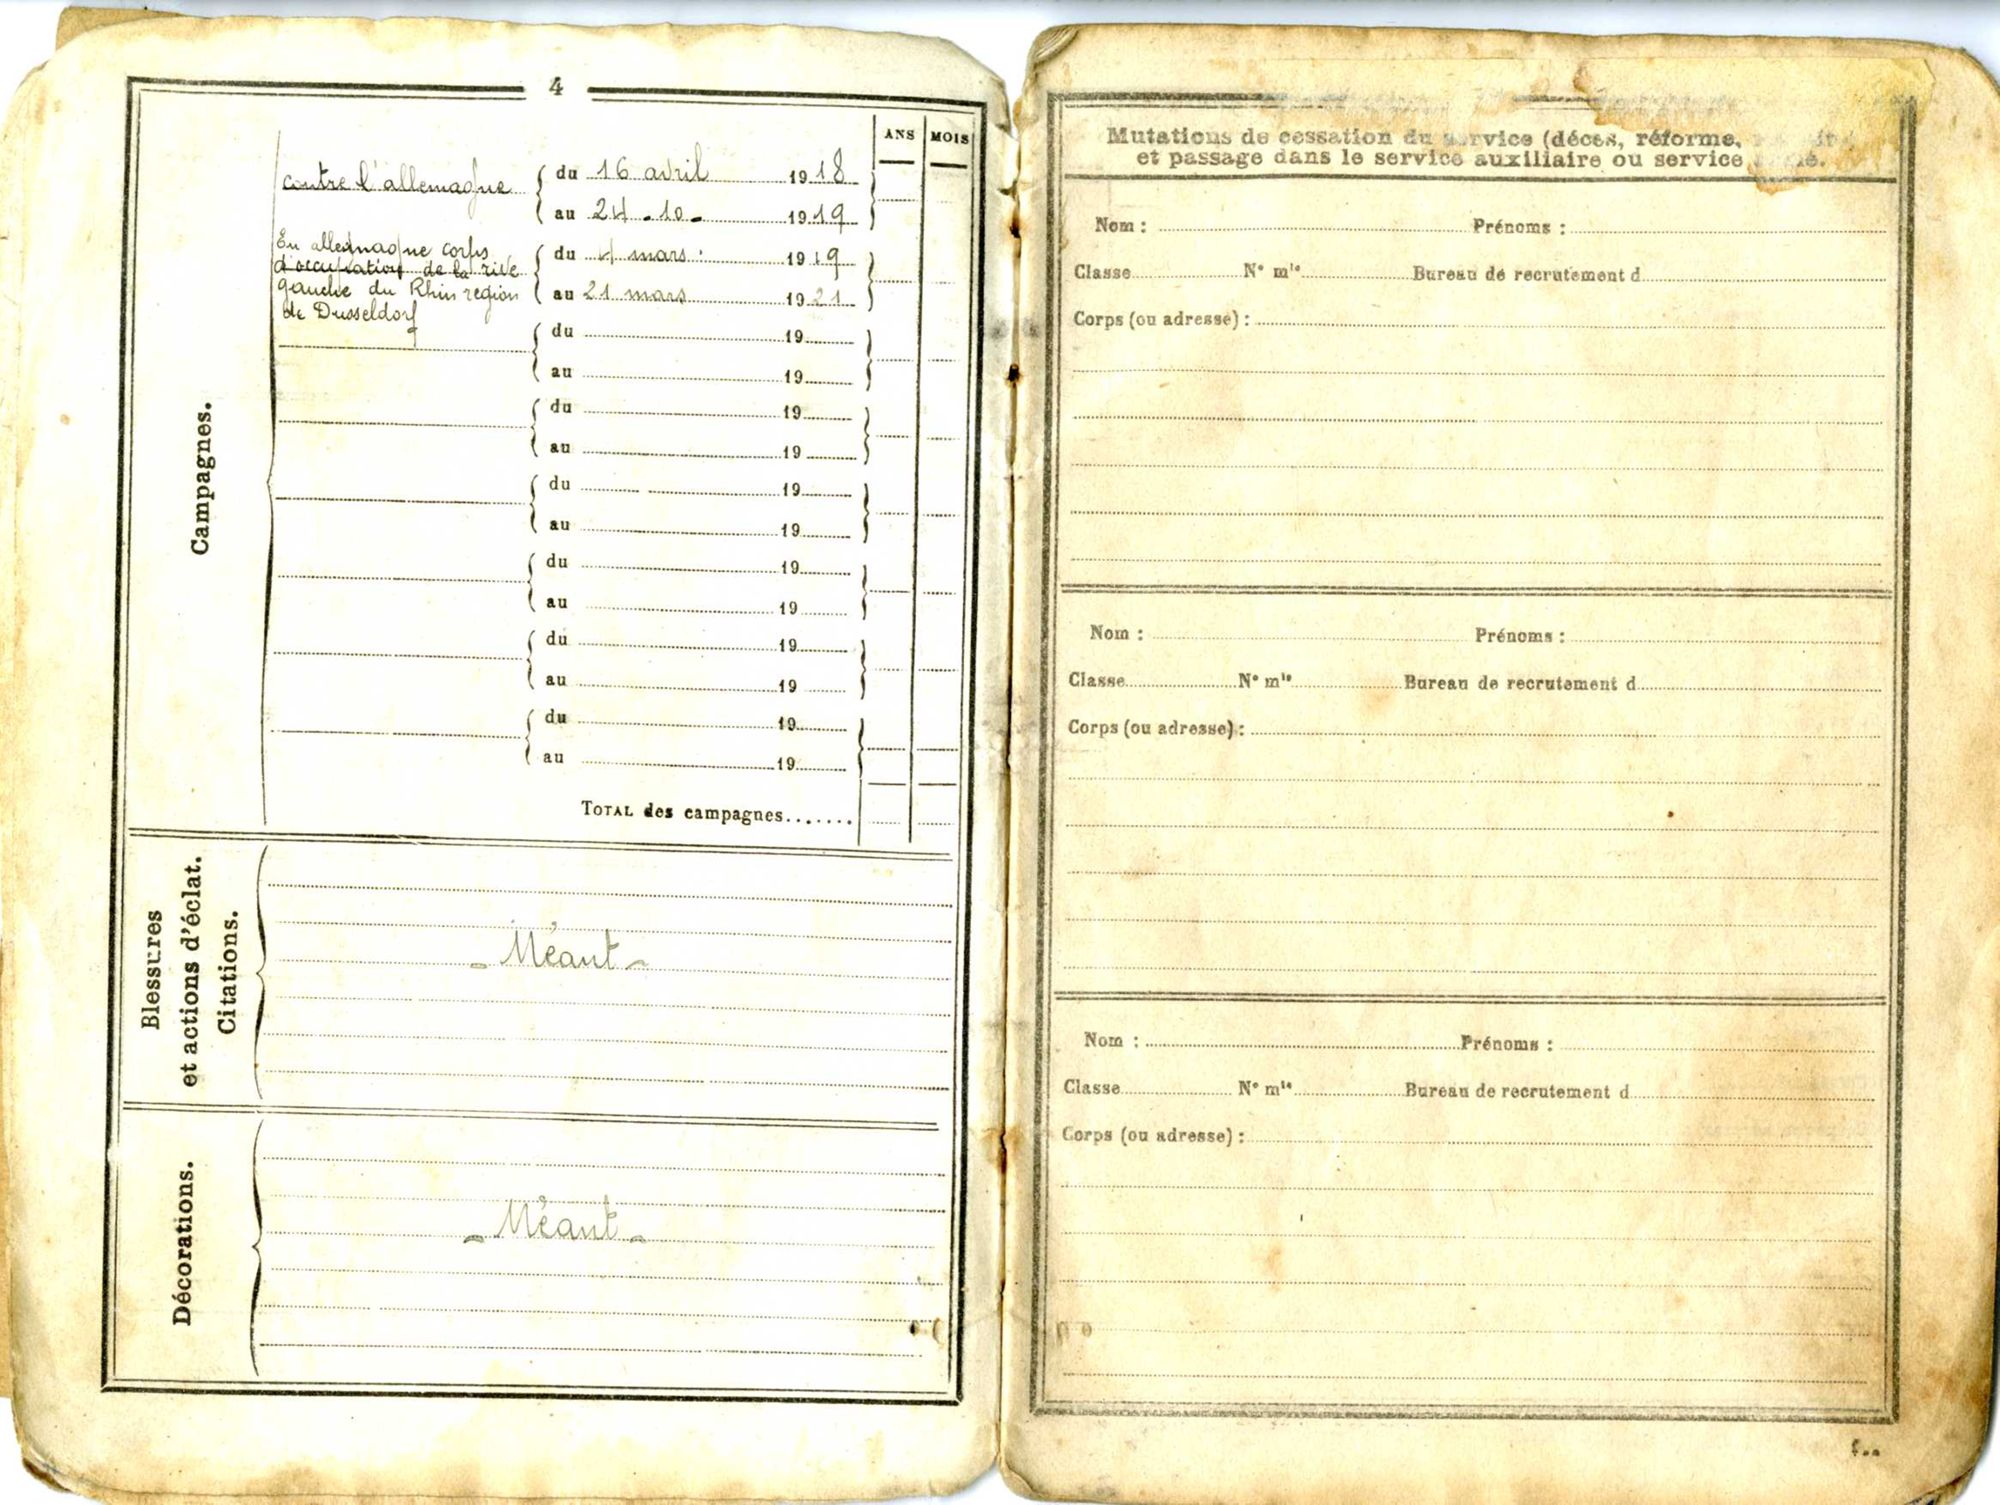 4
ANS MOIS
contre l'allemagne du 16 avril 1918
au 24-10- 1919
En allemagne corps
d'occupation de la rive du 4 mars 1919
gauche du Rhin region au 21 mars 1921
de Dusseldorf
du 19
au 19
du 19
au 19
du 19
au 19
du 19
au 19
du 19
au 19
du 19
au 19
Campagnes.
TOTAL des campagnes.......
Blessures
et actions d'éclat.
Citations.
- Néant -
Décorations.
- Néant -
Mutations de cessation du service (décès, réforme,
et passage dans le service auxiliaire ou service
Nom : Prénoms :
Classe N° mle Bureau de recrutement d
Corps (ou adresse) :
Nom : Prénoms :
Classe N° mle Bureau de recrutement d
Corps (ou adresse) :
Nom : Prénoms :
Classe N° mle Bureau de recrutement d
Corps (ou adresse) :